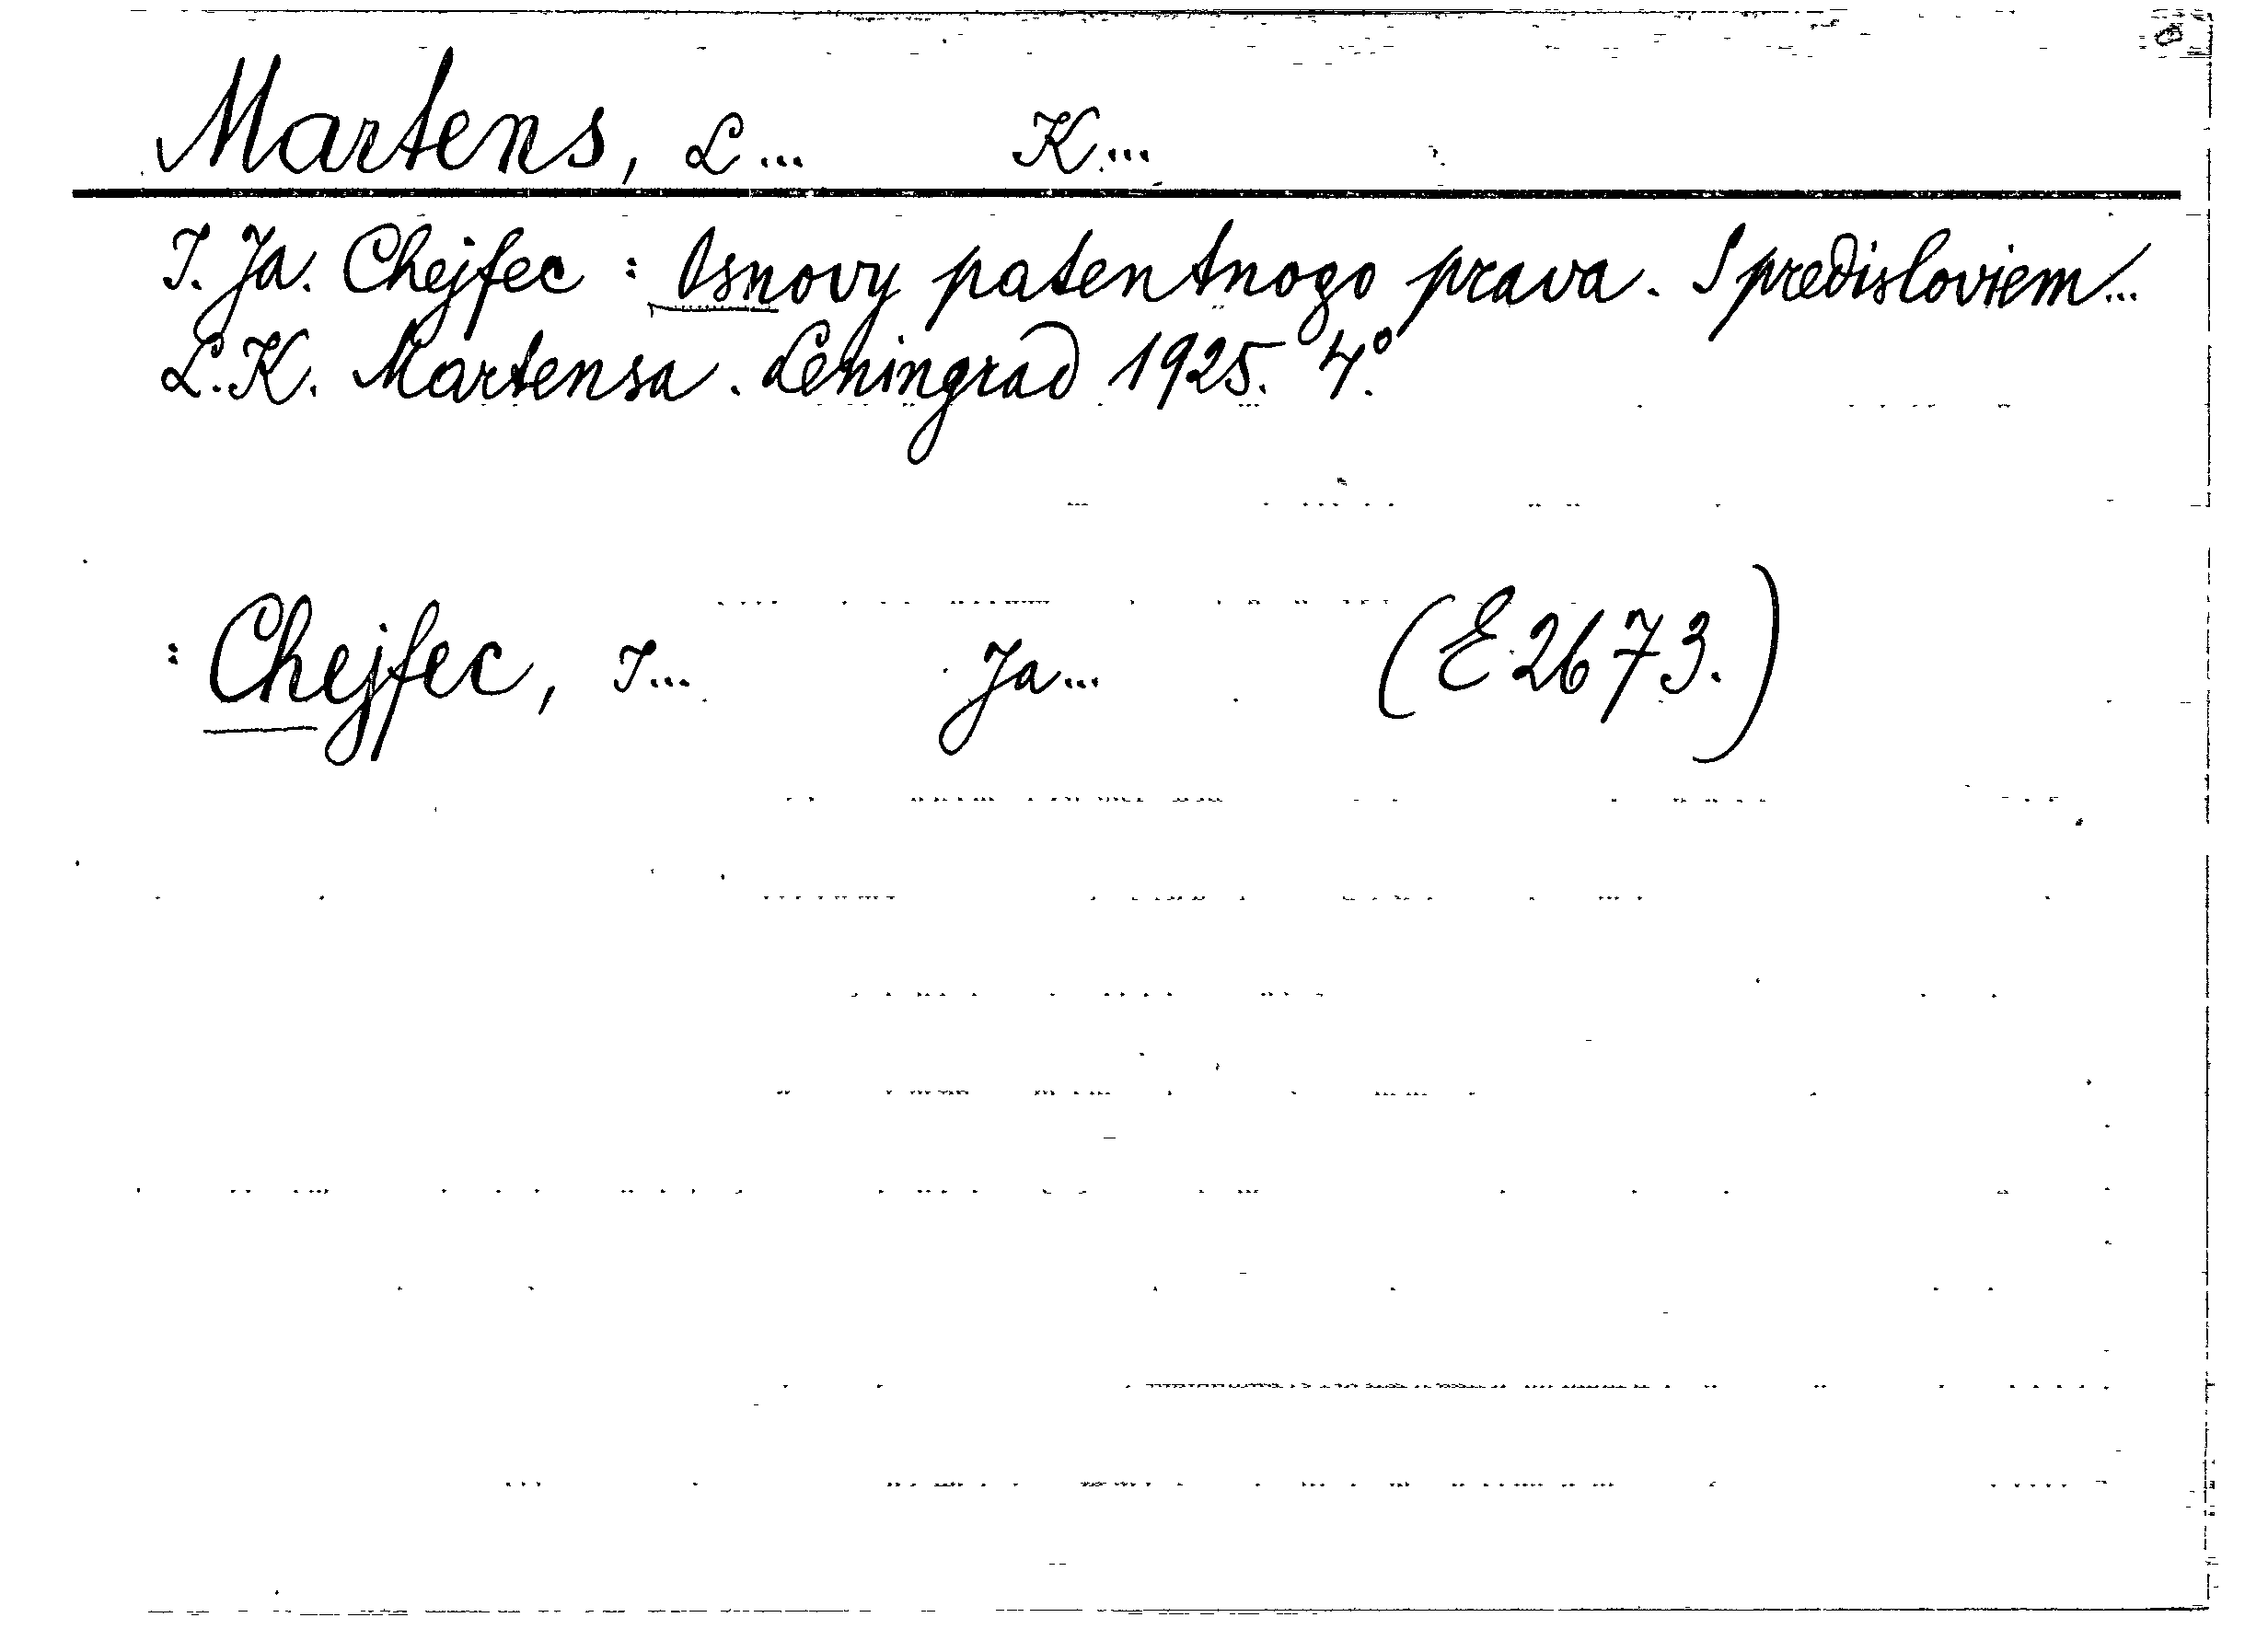 Martens, L... K...
I. Ja. Chejfec : Osnovy patentnogo prava. S predisloviem...
L. K. Martensa. Leningrad 1925. 4°.
: Chejfec, I... Ja... (E 2673.)